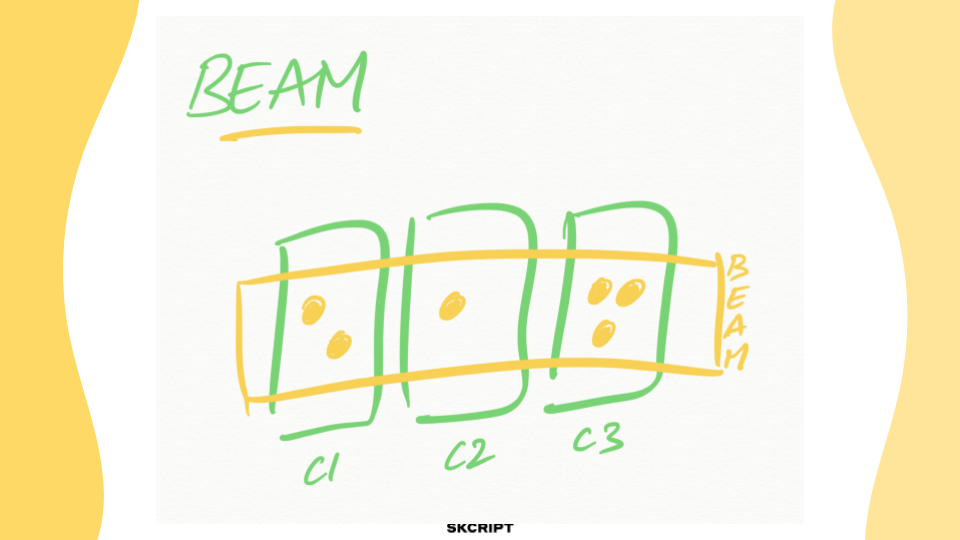 BEAM
BEAM
C1
C2
C3
SKCRIPT